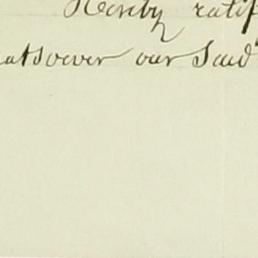 Hereby ratif
atsoever our Said